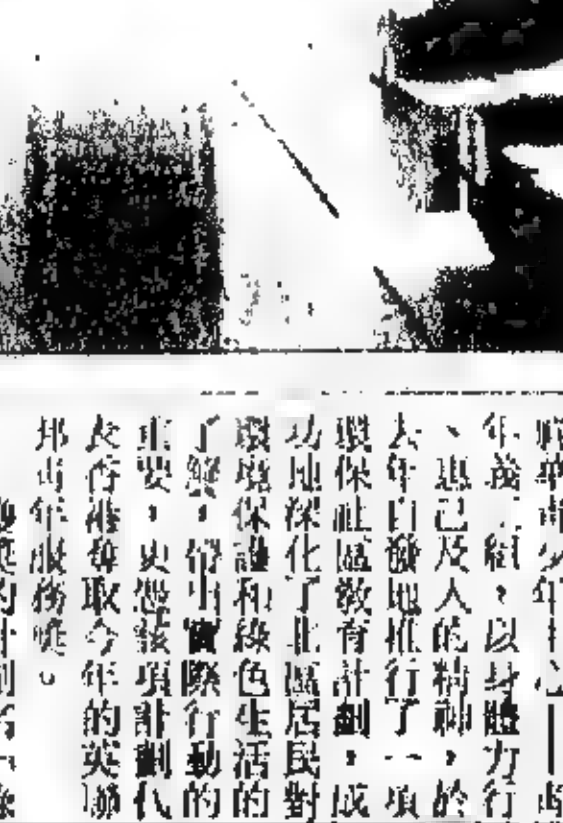 華青少年中心——青
年義工組，以身體力行
、惠己及人的精神，於
去年自發地推行了一項
環保社區教育計劃，成
功地深化了北區居民對
環境保護和綠色生活的
了解，帶出實際行動的
重要，更憑該項計劃代
表香港奪取今年的英聯
邦青年服務獎。
的計劃